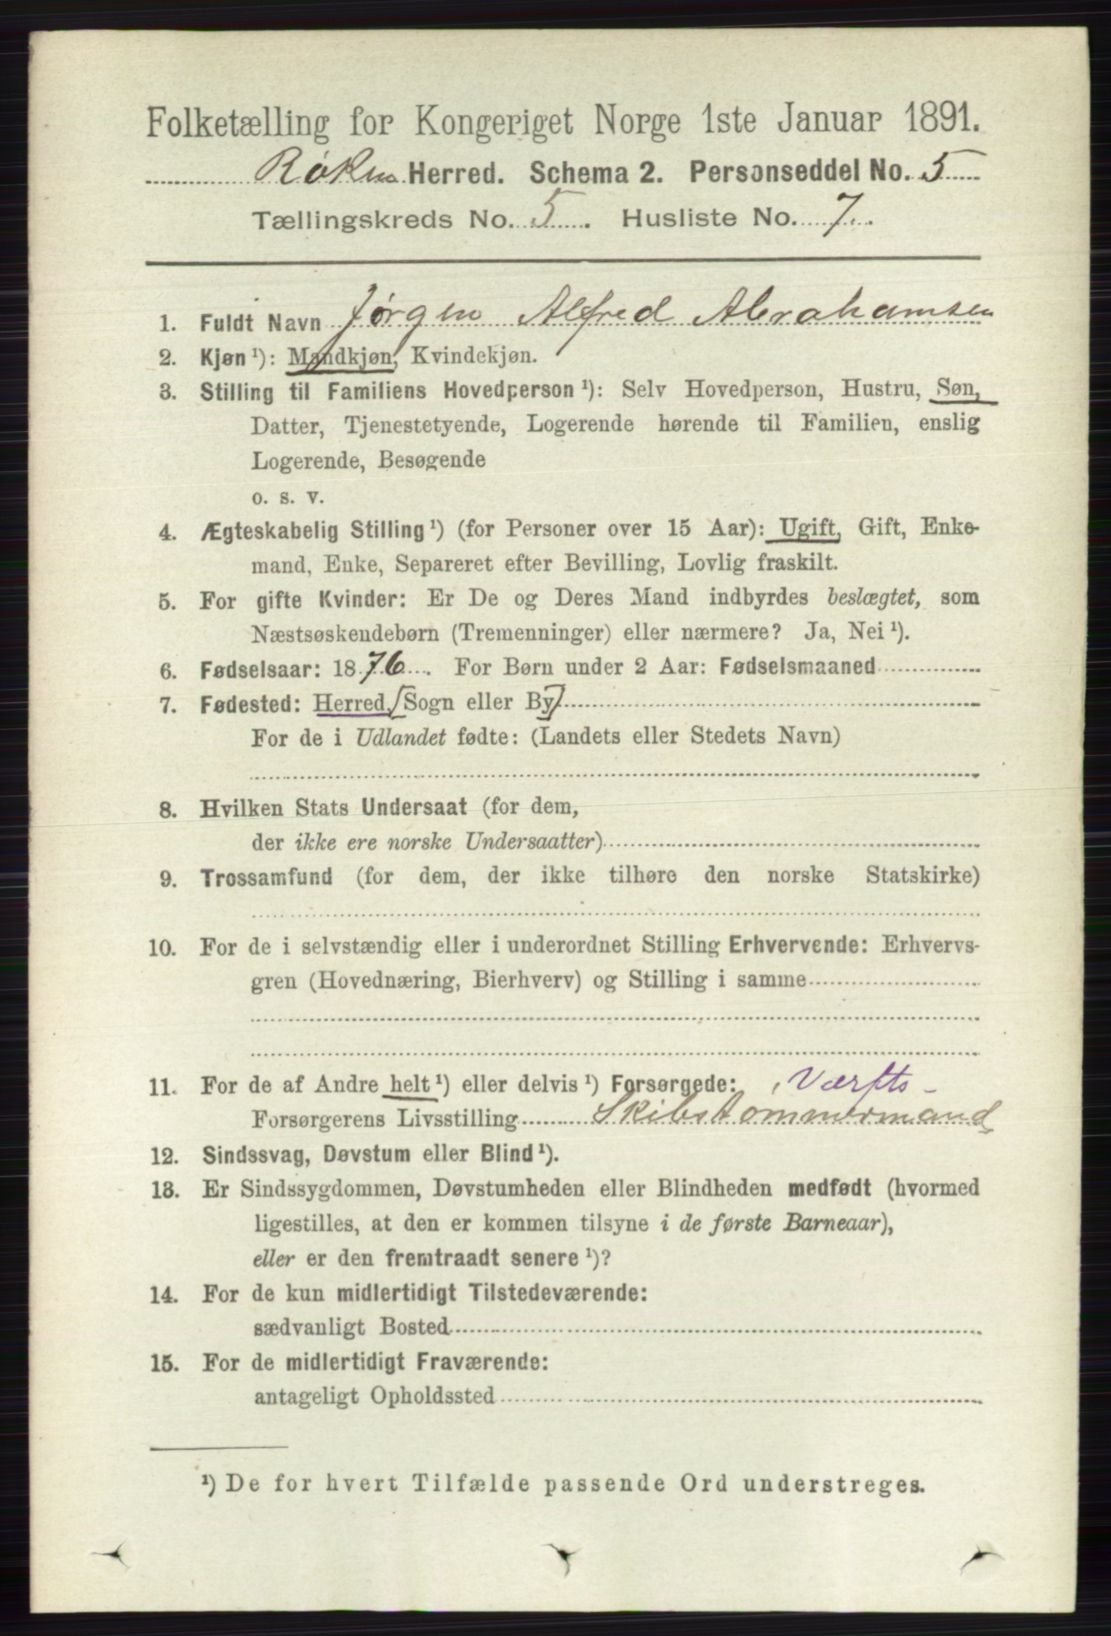 Folketælling for Kongeriget Norge 1ste Januar 1891.
Røken Herred. Schema 2. Personseddel No. 5
Tællingskreds No. 5. Husliste No. 7.
1. Fuldt Navn Jørgen Alfred Abrahamsen
2. Kjøn ¹): Mandkjøn, Kvindekjøn.
3. Stilling til Familiens Hovedperson ¹): Selv Hovedperson, Hustru, Søn,
Datter, Tjenestetyende, Logerende hørende til Familien, enslig
Logerende, Besøgende
o. s. v.
4. Ægteskabelig Stilling ¹) (for Personer over 15 Aar): Ugift, Gift, Enke-
mand, Enke, Separeret efter Bevilling, Lovlig fraskilt.
5. For gifte Kvinder: Er De og Deres Mand indbyrdes beslægtet, som
Næstsøskendebørn (Tremenninger) eller nærmere? Ja, Nei ¹).
6. Fødselsaar: 1876. For Børn under 2 Aar: Fødselsmaaned
7. Fødested: Herred, [Sogn eller By]
For de i Udlandet fødte: (Landets eller Stedets Navn)
8. Hvilken Stats Undersaat (for dem,
der ikke ere norske Undersaatter)
9. Trossamfund (for dem, der ikke tilhøre den norske Statskirke)
10. For de i selvstændig eller i underordnet Stilling Erhvervende: Erhvervs-
gren (Hovednæring, Bierhverv) og Stilling i samme
11. For de af Andre helt ¹) eller delvis ¹) Forsørgede: , Værfts-
Forsørgerens Livsstilling Skibstømmermand
12. Sindssvag, Døvstum eller Blind ¹).
13. Er Sindssygdommen, Døvstumheden eller Blindheden medfødt (hvormed
ligestilles, at den er kommen tilsyne i de første Barneaar),
eller er den fremtraadt senere ¹)?
14. For de kun midlertidigt Tilstedeværende:
sædvanligt Bosted
15. For de midlertidigt Fraværende:
antageligt Opholdssted
¹) De for hvert Tilfælde passende Ord understreges.